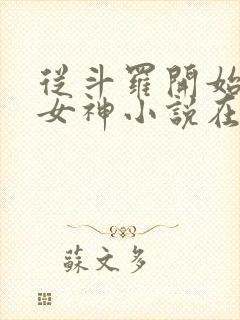 從斗羅開始
女神小說在
蘇文多